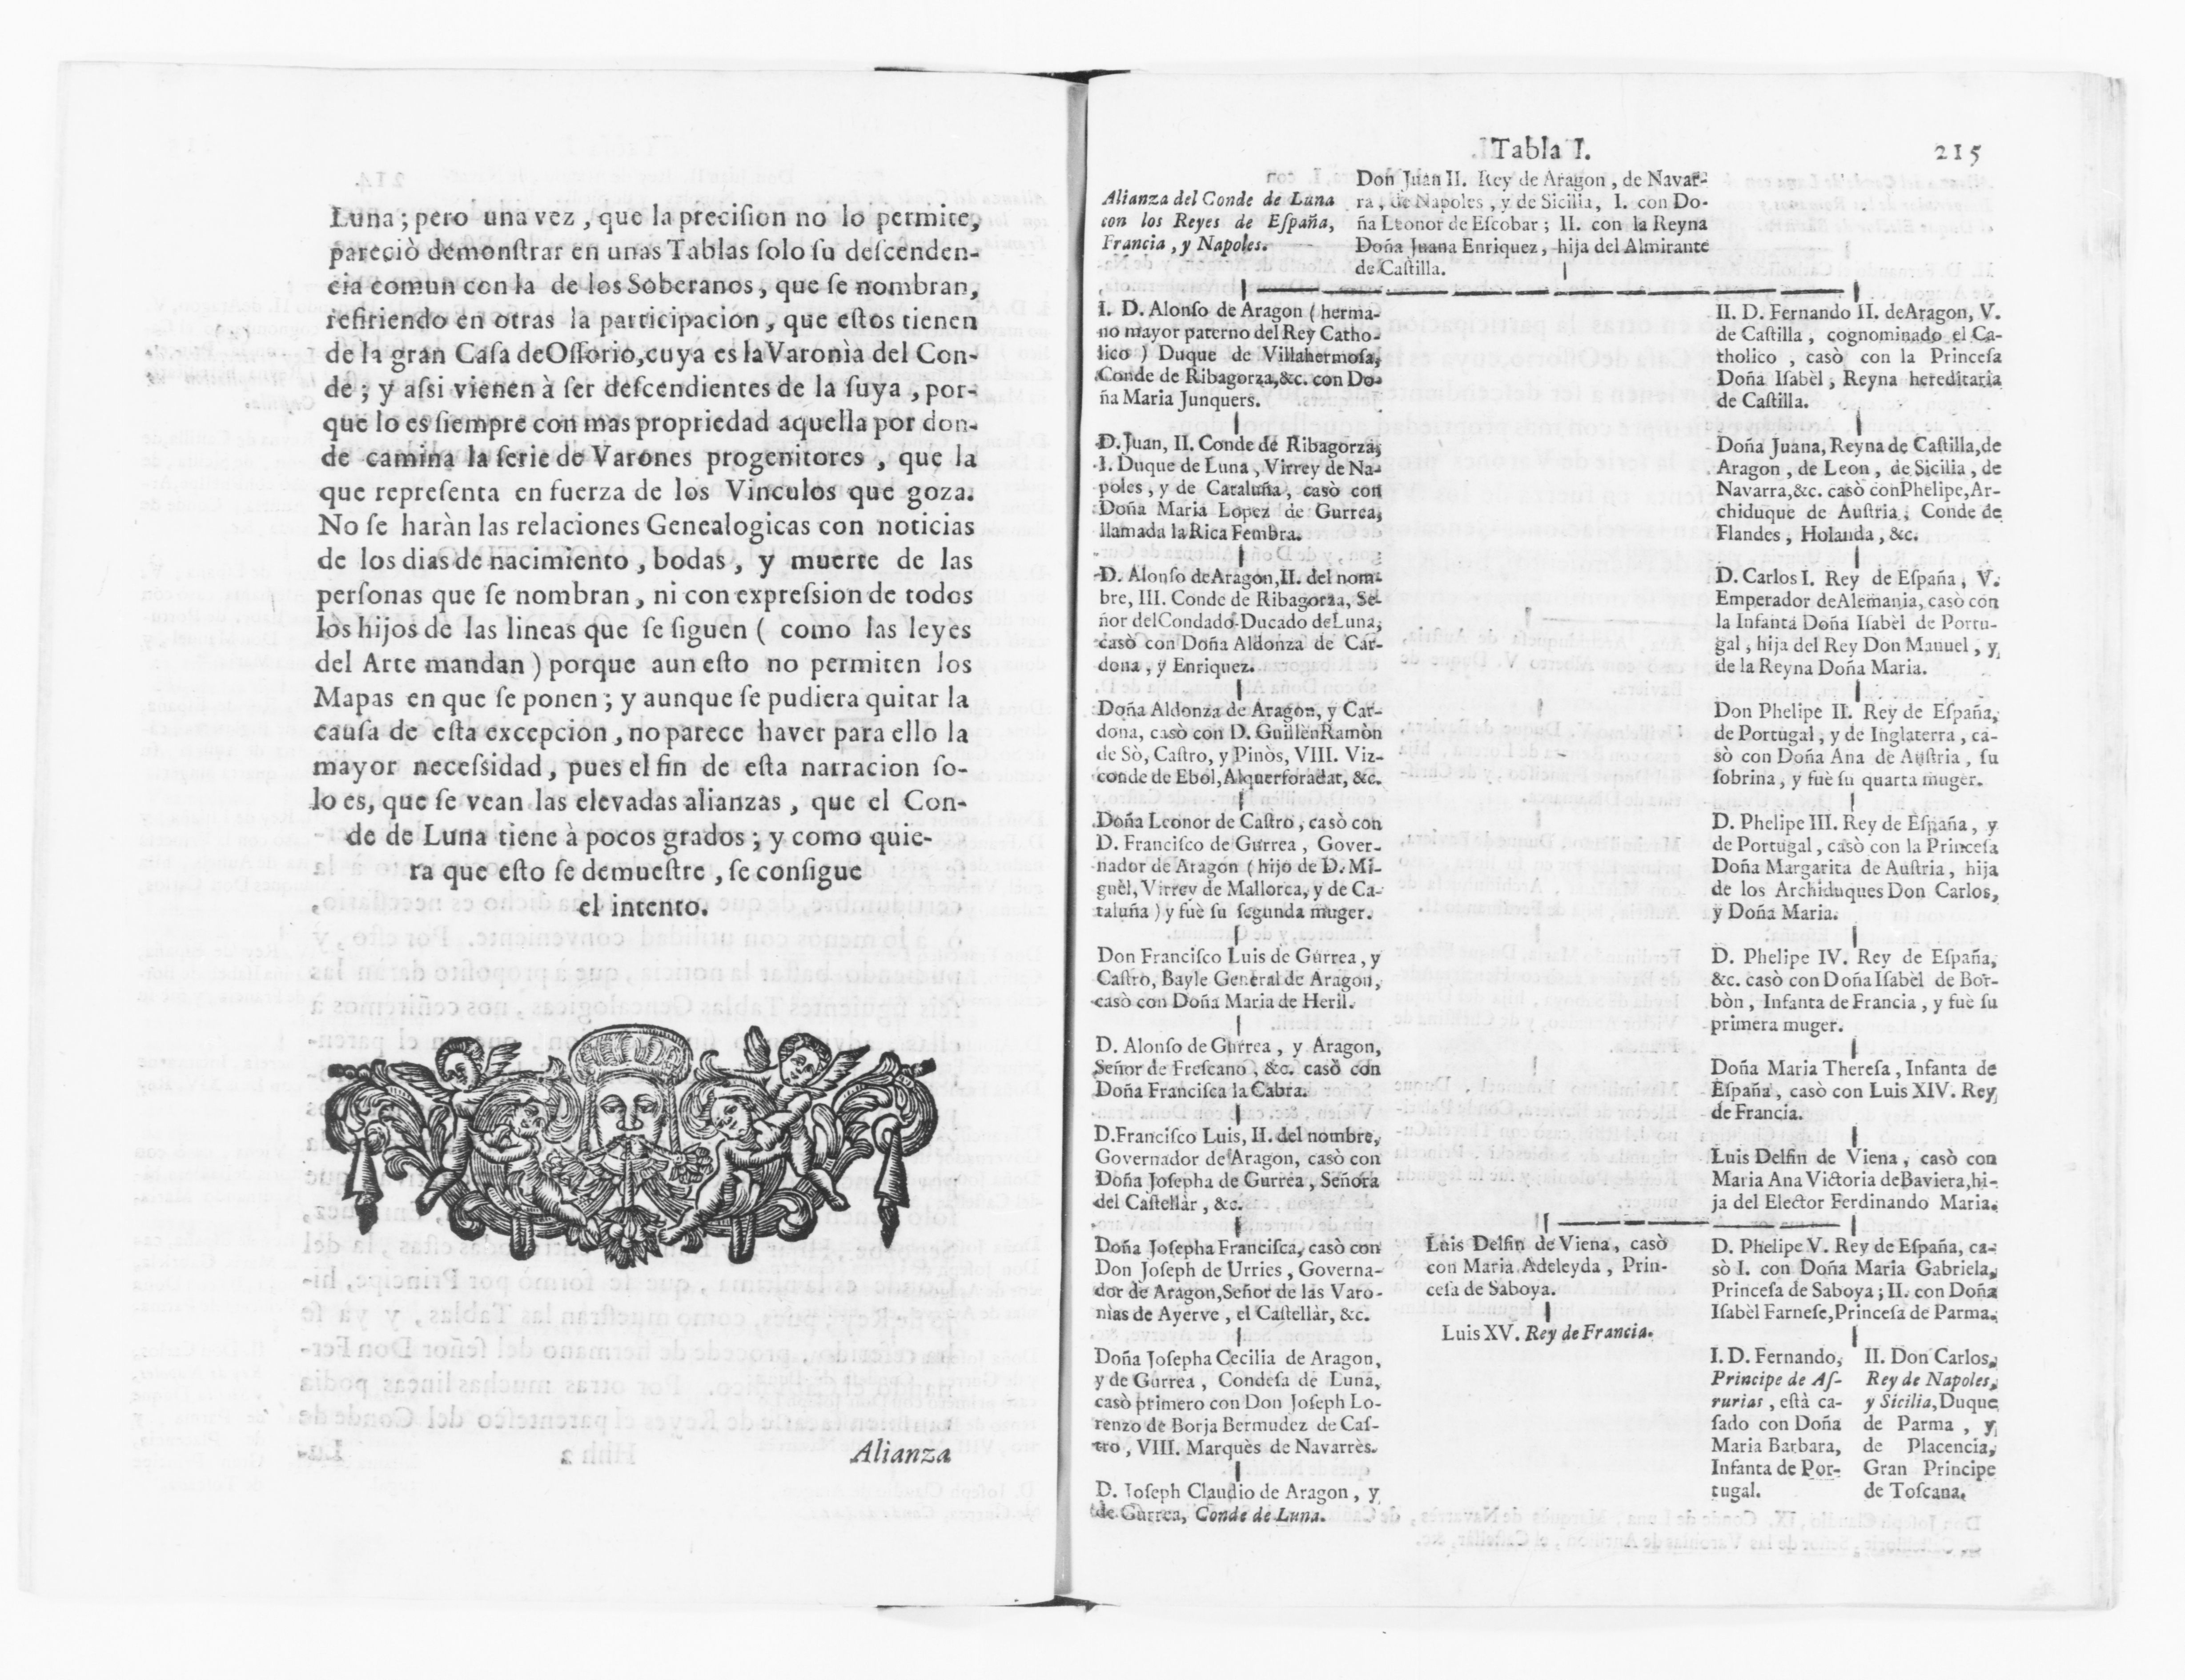 Luna; pero una vez, que la preciſion no lo permite,
pareciò demonſtrar en unas Tablas ſolo ſu deſcenden-
cia comun con la de los Soberanos, que ſe nombran,
refiriendo en otras la participacion, que eſtos tienen
de la gran Caſa de Oſſorio, cuya es la Varonìa del Con-
de; y aſsi vienen à ſer deſcendientes de la ſuya, por-
que lo es ſiempre con mas propriedad aquella por don-
de camina la ſerie de Varones progenitores, que la
que repreſenta en fuerza de los Vinculos que goza.
No ſe haràn las relaciones Genealogicas con noticias
de los dias de nacimiento, bodas, y muerte de las
perſonas que ſe nombran, ni con expreſsion de todos
los hijos de las lineas que ſe ſiguen ( como las leyes
del Arte mandan ) porque aun eſto no permiten los
Mapas en que ſe ponen; y aunque ſe pudiera quitar la
cauſa de eſta excepcion, no parece haver para ello la
mayor neceſsidad, pues el fin de eſta narracion ſo-
lo es, que ſe vean las elevadas alianzas, que el Con-
de de Luna tiene à pocos grados; y como quie-
ra que eſto ſe demueſtre, ſe conſigue
el intento.
Alianza
Tabla I.
215
Alianza del Conde de Luna
con los Reyes de Eſpaña,
Francia, y Napoles.
Don Juan II. Rey de Aragon, de Navar-
ra, de Napoles, y de Sicilia, I. con Do-
ña Leonor de Eſcobar; II. con la Reyna
Doña Juana Enriquez, hija del Almirante
de Caſtilla.
I. D. Alonſo de Aragon ( herma-
no mayor paterno del Rey Catho-
lico ) Duque de Villahermoſa,
Conde de Ribagorza, &c. con Do-
ña Maria Junquers.
D. Juan, II. Conde de Ribagorza,
I. Duque de Luna, Virrey de Na-
poles, y de Cataluña, casò con
Doña Maria Lopez de Gurrea,
llamada la Rica Fembra.
D. Alonſo de Aragon, II. del nom-
bre, III. Conde de Ribagorza, Se-
ñor del Condado-Ducado de Luna,
casò con Doña Aldonza de Car-
dona, y Enriquez.
Doña Aldonza de Aragon, y Car-
dona, casò con D. Guillèn Ramòn
de Sò, Caſtro, y Pinòs, VIII. Viz-
conde de Ebol, Alquerforadat, &c.
Doña Leonor de Caſtro, casò con
D. Franciſco de Gurrea, Gover-
nador de Aragon ( hijo de D. Mi-
guèl, Virrey de Mallorca, y de Ca-
taluña ) y fuè ſu ſegunda muger.
Don Franciſco Luis de Gurrea, y
Caſtro, Bayle General de Aragon,
casò con Doña Maria de Heril.
D. Alonſo de Gurrea, y Aragon,
Señor de Freſcano, &c. casò con
Doña Franciſca la Cabra.
D. Franciſco Luis, II. del nombre,
Governador de Aragon, casò con
Doña Joſepha de Gurrea, Señora
del Caſtellàr, &c.
Doña Joſepha Franciſca, casò con
Don Joſeph de Urries, Governa-
dor de Aragon, Señor de las Varo-
nìas de Ayerve, el Caſtellàr, &c.
Doña Joſepha Cecilia de Aragon,
y de Gurrea, Condeſa de Luna,
casò primero con Don Joſeph Lo-
renzo de Borja Bermudez de Caſ-
tro, VIII. Marquès de Navarrès.
D. Joſeph Claudio de Aragon, y
de Gurrea, Conde de Luna.
II. D. Fernando II. de Aragon, V.
de Caſtilla, cognominado el Ca-
tholico, casò con la Princeſa
Doña Iſabèl, Reyna hereditaria
de Caſtilla.
Doña Juana, Reyna de Caſtilla, de
Aragon, de Leon, de Sicilia, de
Navarra, &c. casò con Phelipe, Ar-
chiduque de Auſtria, Conde de
Flandes, Holanda, &c.
D. Carlos I. Rey de Eſpaña, V.
Emperador de Alemania, casò con
la Infanta Doña Iſabèl de Portu-
gal, hija del Rey Don Manuel, y
de la Reyna Doña Maria.
Don Phelipe II. Rey de Eſpaña,
de Portugal, y de Inglaterra, ca-
sò con Doña Ana de Auſtria, ſu
ſobrina, y fuè ſu quarta muger.
D. Phelipe III. Rey de Eſpaña, y
de Portugal, casò con la Princeſa
Doña Margarita de Auſtria, hija
de los Archiduques Don Carlos,
y Doña Maria.
D. Phelipe IV. Rey de Eſpaña,
&c. casò con Doña Iſabèl de Bor-
bòn, Infanta de Francia, y fuè ſu
primera muger.
Doña Maria Thereſa, Infanta de
Eſpaña, casò con Luis XIV. Rey
de Francia.
Luis Delfin de Viena, casò con
Maria Ana Victoria de Baviera, hi-
ja del Elector Ferdinando Maria.
Luis Delfin de Viena, casò
con Maria Adeleyda, Prin-
ceſa de Saboya.
Luis XV. Rey de Francia.
D. Phelipe V. Rey de Eſpaña, ca-
sò I. con Doña Maria Gabriela,
Princeſa de Saboya; II. con Doña
Iſabèl Farneſe, Princeſa de Parma.
I. D. Fernando,
Principe de Aſ-
turias, eſtà ca-
ſado con Doña
Maria Barbara,
Infanta de Por-
tugal.
II. Don Carlos,
Rey de Napoles,
y Sicilia, Duque
de Parma, y
de Placencia,
Gran Principe
de Toſcana.